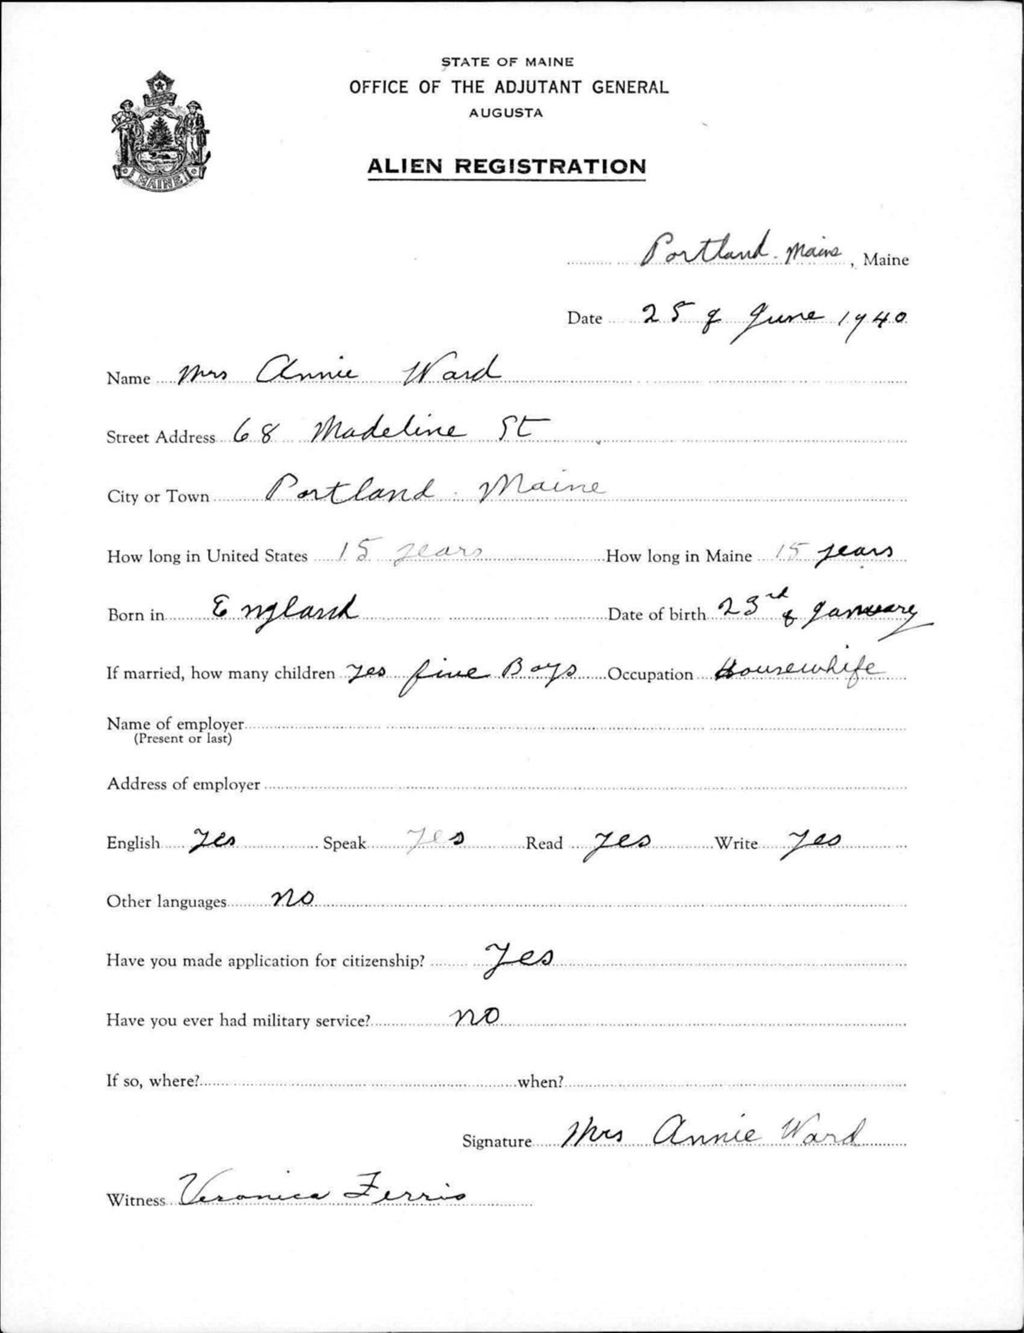 STATE OF MAINE
OFFICE OF THE ADJUTANT GENERAL
AUGUSTA
ALIEN REGISTRATION
MAINE
Portland. Maine, Maine
Date 25 of June 1940
Name Mrs Annie Ward
Street Address 68 Madeline St
City or Town Portland. Maine
How long in United States 15 years How long in Maine 15 years
Born in England Date of birth 23rd of January
If married, how many children yes five Boys Occupation Housewhife
Name of employer
(Present or last)
Address of employer
English yes Speak yes Read yes Write yes
Other languages no
Have you made application for citizenship? Yes
Have you ever had military service? no
If so, where? when?
Signature Mrs Annie Ward
Witness Veronica Ferris